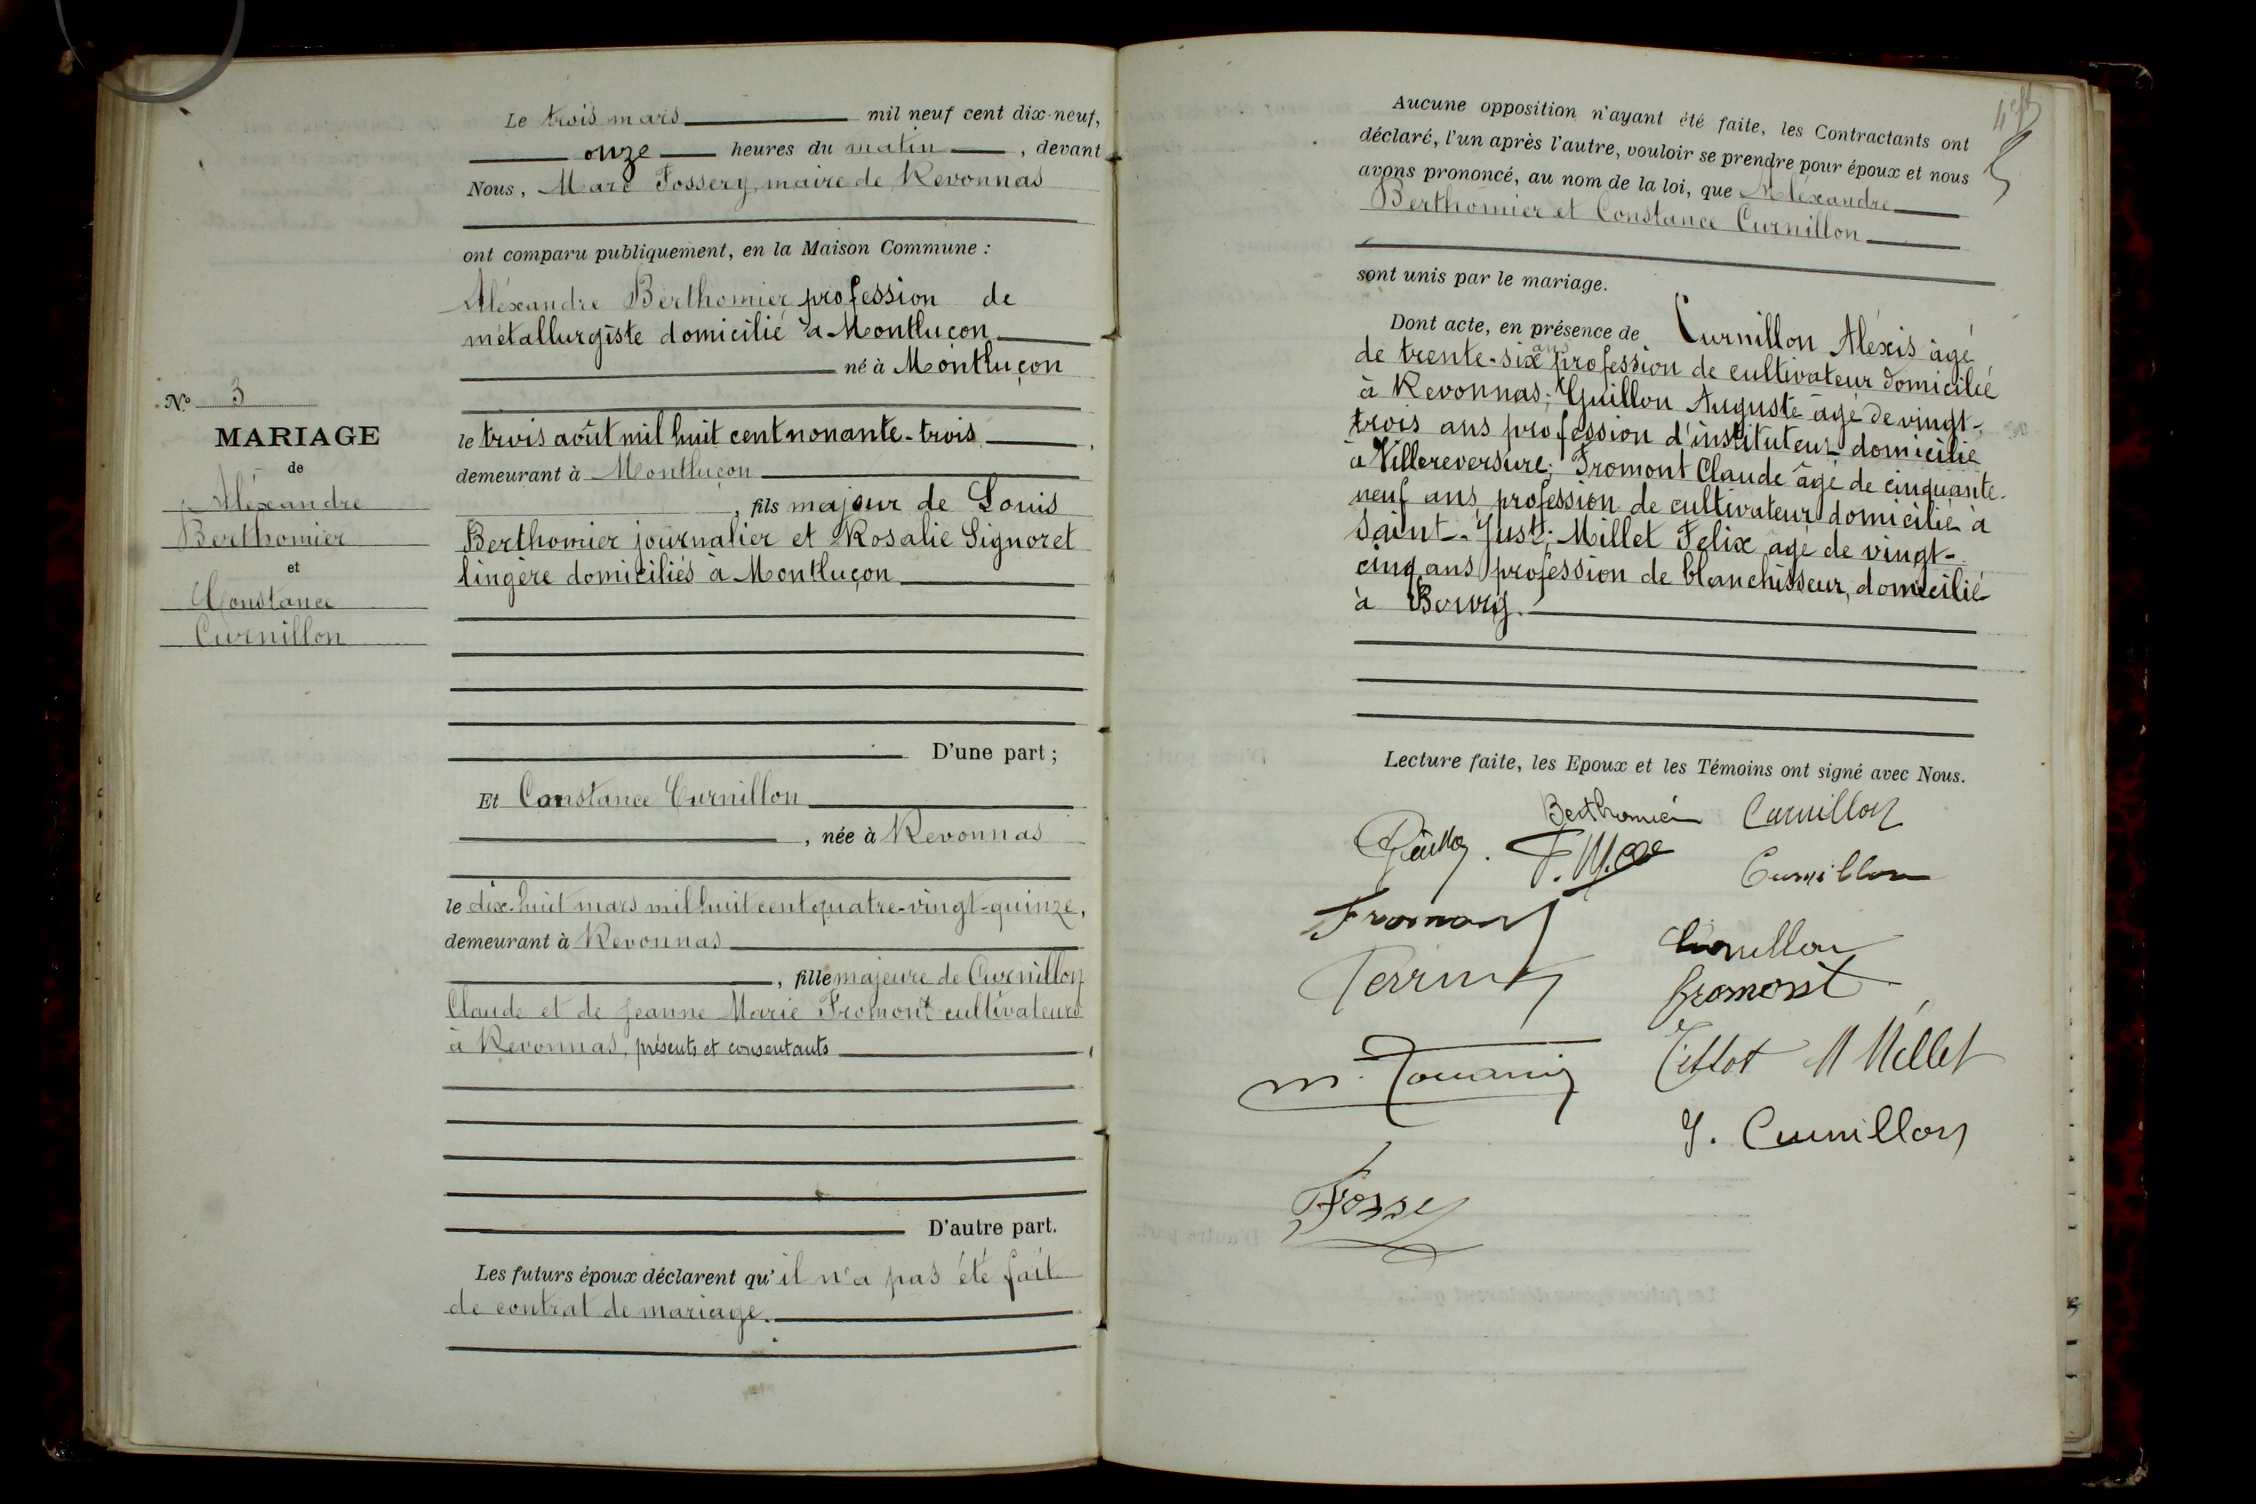 N° 3
MARIAGE
de
Aléxandre
Berthomier
et
Constance
Curnillon
Le trois mars mil neuf cent dix-neuf,
onze heures du matin, devant
Nous, Marc Fossery, maire de Revonnas
ont comparu publiquement, en la Maison Commune :
Aléxandre Berthomier, profession de
métallurgiste domicilié à Montluçon
né à Montluçon
le trois août mil huit cent nonante-trois,
demeurant à Montluçon
, fils majeur de Louis
Berthomier journalier et Rosalie Signoret
lingère domiciliés à Montluçon
D'une part ;
Et Constance Curnillon
, née à Revonnas
le dix-huit mars mil huit cent quatre-vingt-quinze,
demeurant à Revonnas
, fille majeure de Curnillon
Claude et de Jeanne Marie Fromont cultivateurs
à Revonnas, présents et consentants
D'autre part.
Les futurs époux déclarent qu'il n'a pas été fait
de contrat de mariage.
Aucune opposition n'ayant été faite, les Contractants ont
déclaré, l'un après l'autre, vouloir se prendre pour époux et nous
avons prononcé, au nom de la loi, que Aléxandre
Berthomier et Constance Curnillon
sont unis par le mariage.
Dont acte, en présence de Curnillon Aléxis âgé
de trente-six ans profession de cultivateur domicilié
à Revonnas; Guillon Auguste âgé de vingt-
trois ans profession d'instituteur domicilié
à Villereversure; Fromont Claude âgé de cinquante-
neuf ans profession de cultivateur domicilié à
Saint-Just; Millet Felix âgé de vingt-
cinq ans profession de blanchisseur, domicilié
à Bourg.
Lecture faite, les Epoux et les Témoins ont signé avec Nous.
Berthomier Curnillon
Curnillon
Fromont
Curnillon
Perrin
Fromont
M Millet
J. Curnillon